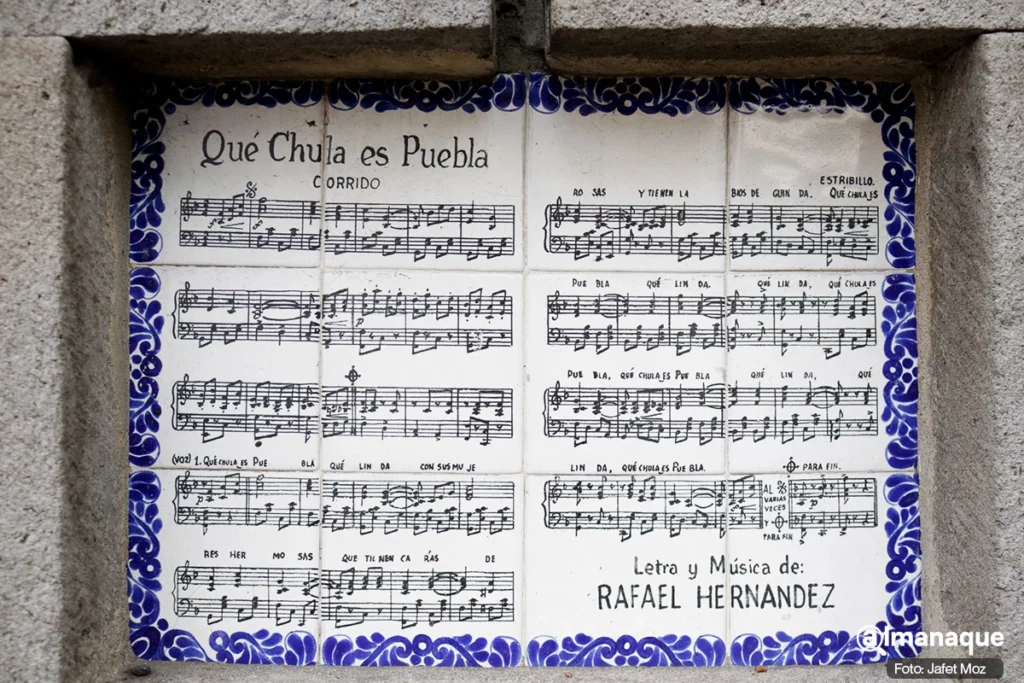 Qué Chula es Puebla
CORRIDO
(VOZ) 1. QUÉ CHULA ES PUE BLA QUÉ LIN DA CON SUS MU JE
RES HER MO SAS QUE TIENEN CA RAS DE
ESTRIBILLO.
RO SAS Y TIENEN LA BIOS DE GUIN DA. QUÉ CHULA ES
PUE BLA QUÉ LIN DA. QUÉ LIN DA, QUÉ CHULA ES
PUE BLA, QUÉ CHULA ES PUE BLA QUÉ LIN DA, QUÉ
LIN DA, QUÉ CHULA ES PUE BLA. PARA FIN.
AL
VARIAS
VECES
Y
PARA FIN
Letra y Música de:
RAFAEL HERNANDEZ
@lmanaque
Foto: Jafet Moz